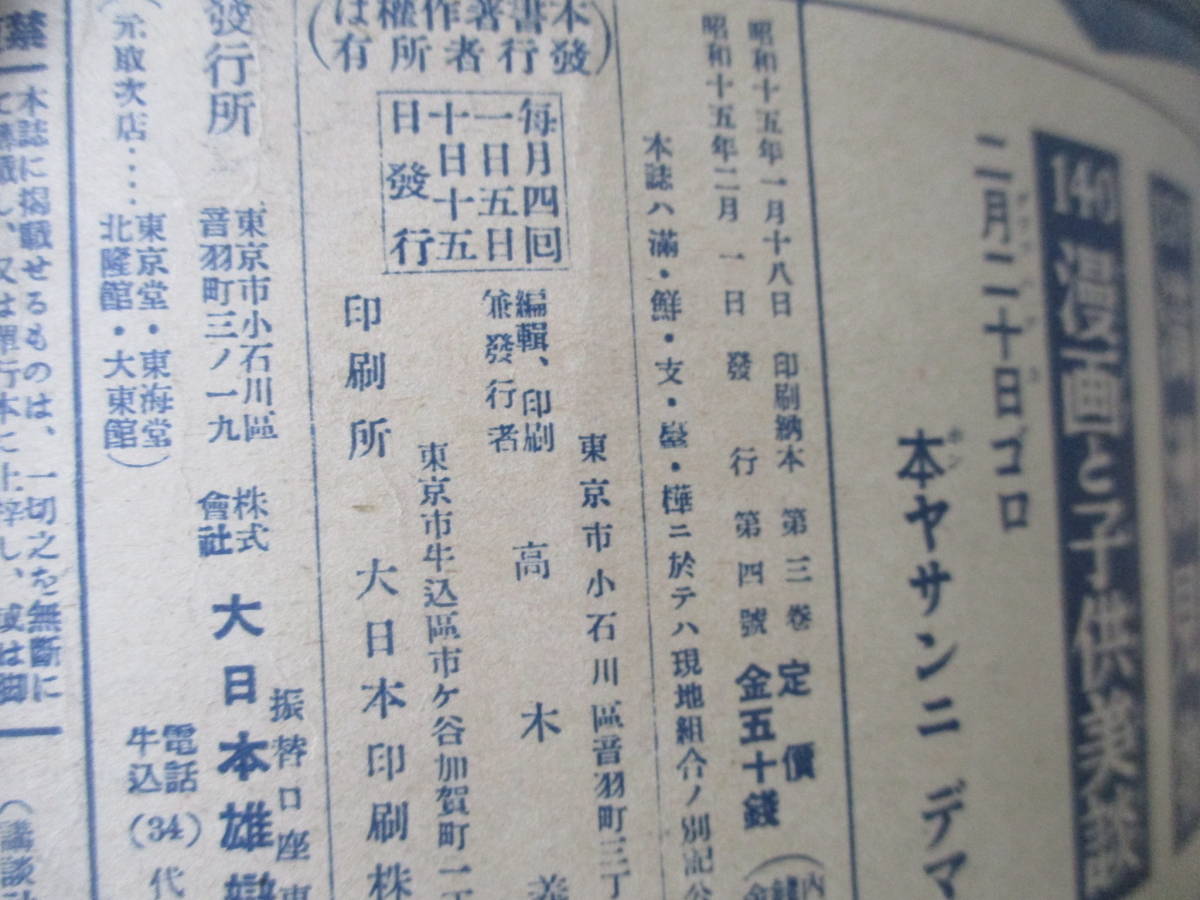 140 漫画と子供美談
二月二十日ゴロ
本ヤサンニ デマ
昭和十五年一月十八日 印刷納本 第三巻 定價
昭和十五年二月 一日 發 行 第四號 金五十錢
本誌ハ滿・鮮・支・臺・樺ニ於テハ現地組合ノ別記
(本書發行
著作者
權所
は有)
每月四回
一日五日
十日十五
日發行
東京市小石川區音羽町三丁
編輯、印刷
兼發行者
高木
東京市牛込區市ケ谷加賀町一
印刷所 大日本印刷株
發行所
東京市小石川區
音羽町三ノ一九
株式
會社
大日本雄辯
振替口座東
(元取次店・・・・
東京堂・東海堂
北隆館・大東館)
電話
牛込
(34)代
禁
本誌に掲載せるものは、一切之を無斷に
て轉載し、又は單行本に上梓し、或は脚
(講談社